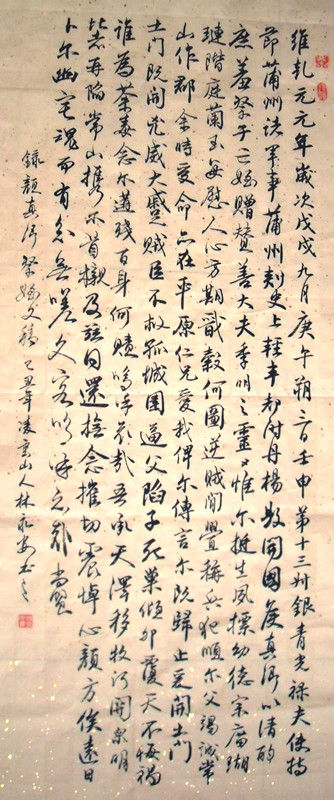 維乾元元年歲次戊戌九月庚午朔三日壬申第十三叔銀青光禄夫使持
節蒲州諸軍事蒲州刺史上輕車都尉丹楊縣開國侯真卿以清酌
庶羞祭于亡姪贈贊善大夫季明之靈曰惟尔挺生夙標幼德宗廟瑚
璉階庭蘭玉每慰人心方期戩穀何圖逆賊閒釁稱兵犯順尔父竭誠常
山作郡余時受命亦在平原仁兄愛我俾尔傳言尔既歸止爰開土門
土門既開兇威大蹙賊臣不救孤城圍逼父陷子死巢傾卵覆天不悔禍
誰為荼毒念尔遘殘百身何贖嗚乎哀哉吾承天澤移牧河關泉明
比者再陷常山攜尔首櫬及兹同還撫念摧切震悼心顏方俟遠日
卜尔幽宅魂而有知無嗟久客嗚呼哀哉尚饗
録顏真卿祭姪文稿己丑年凌雲山人林 安书